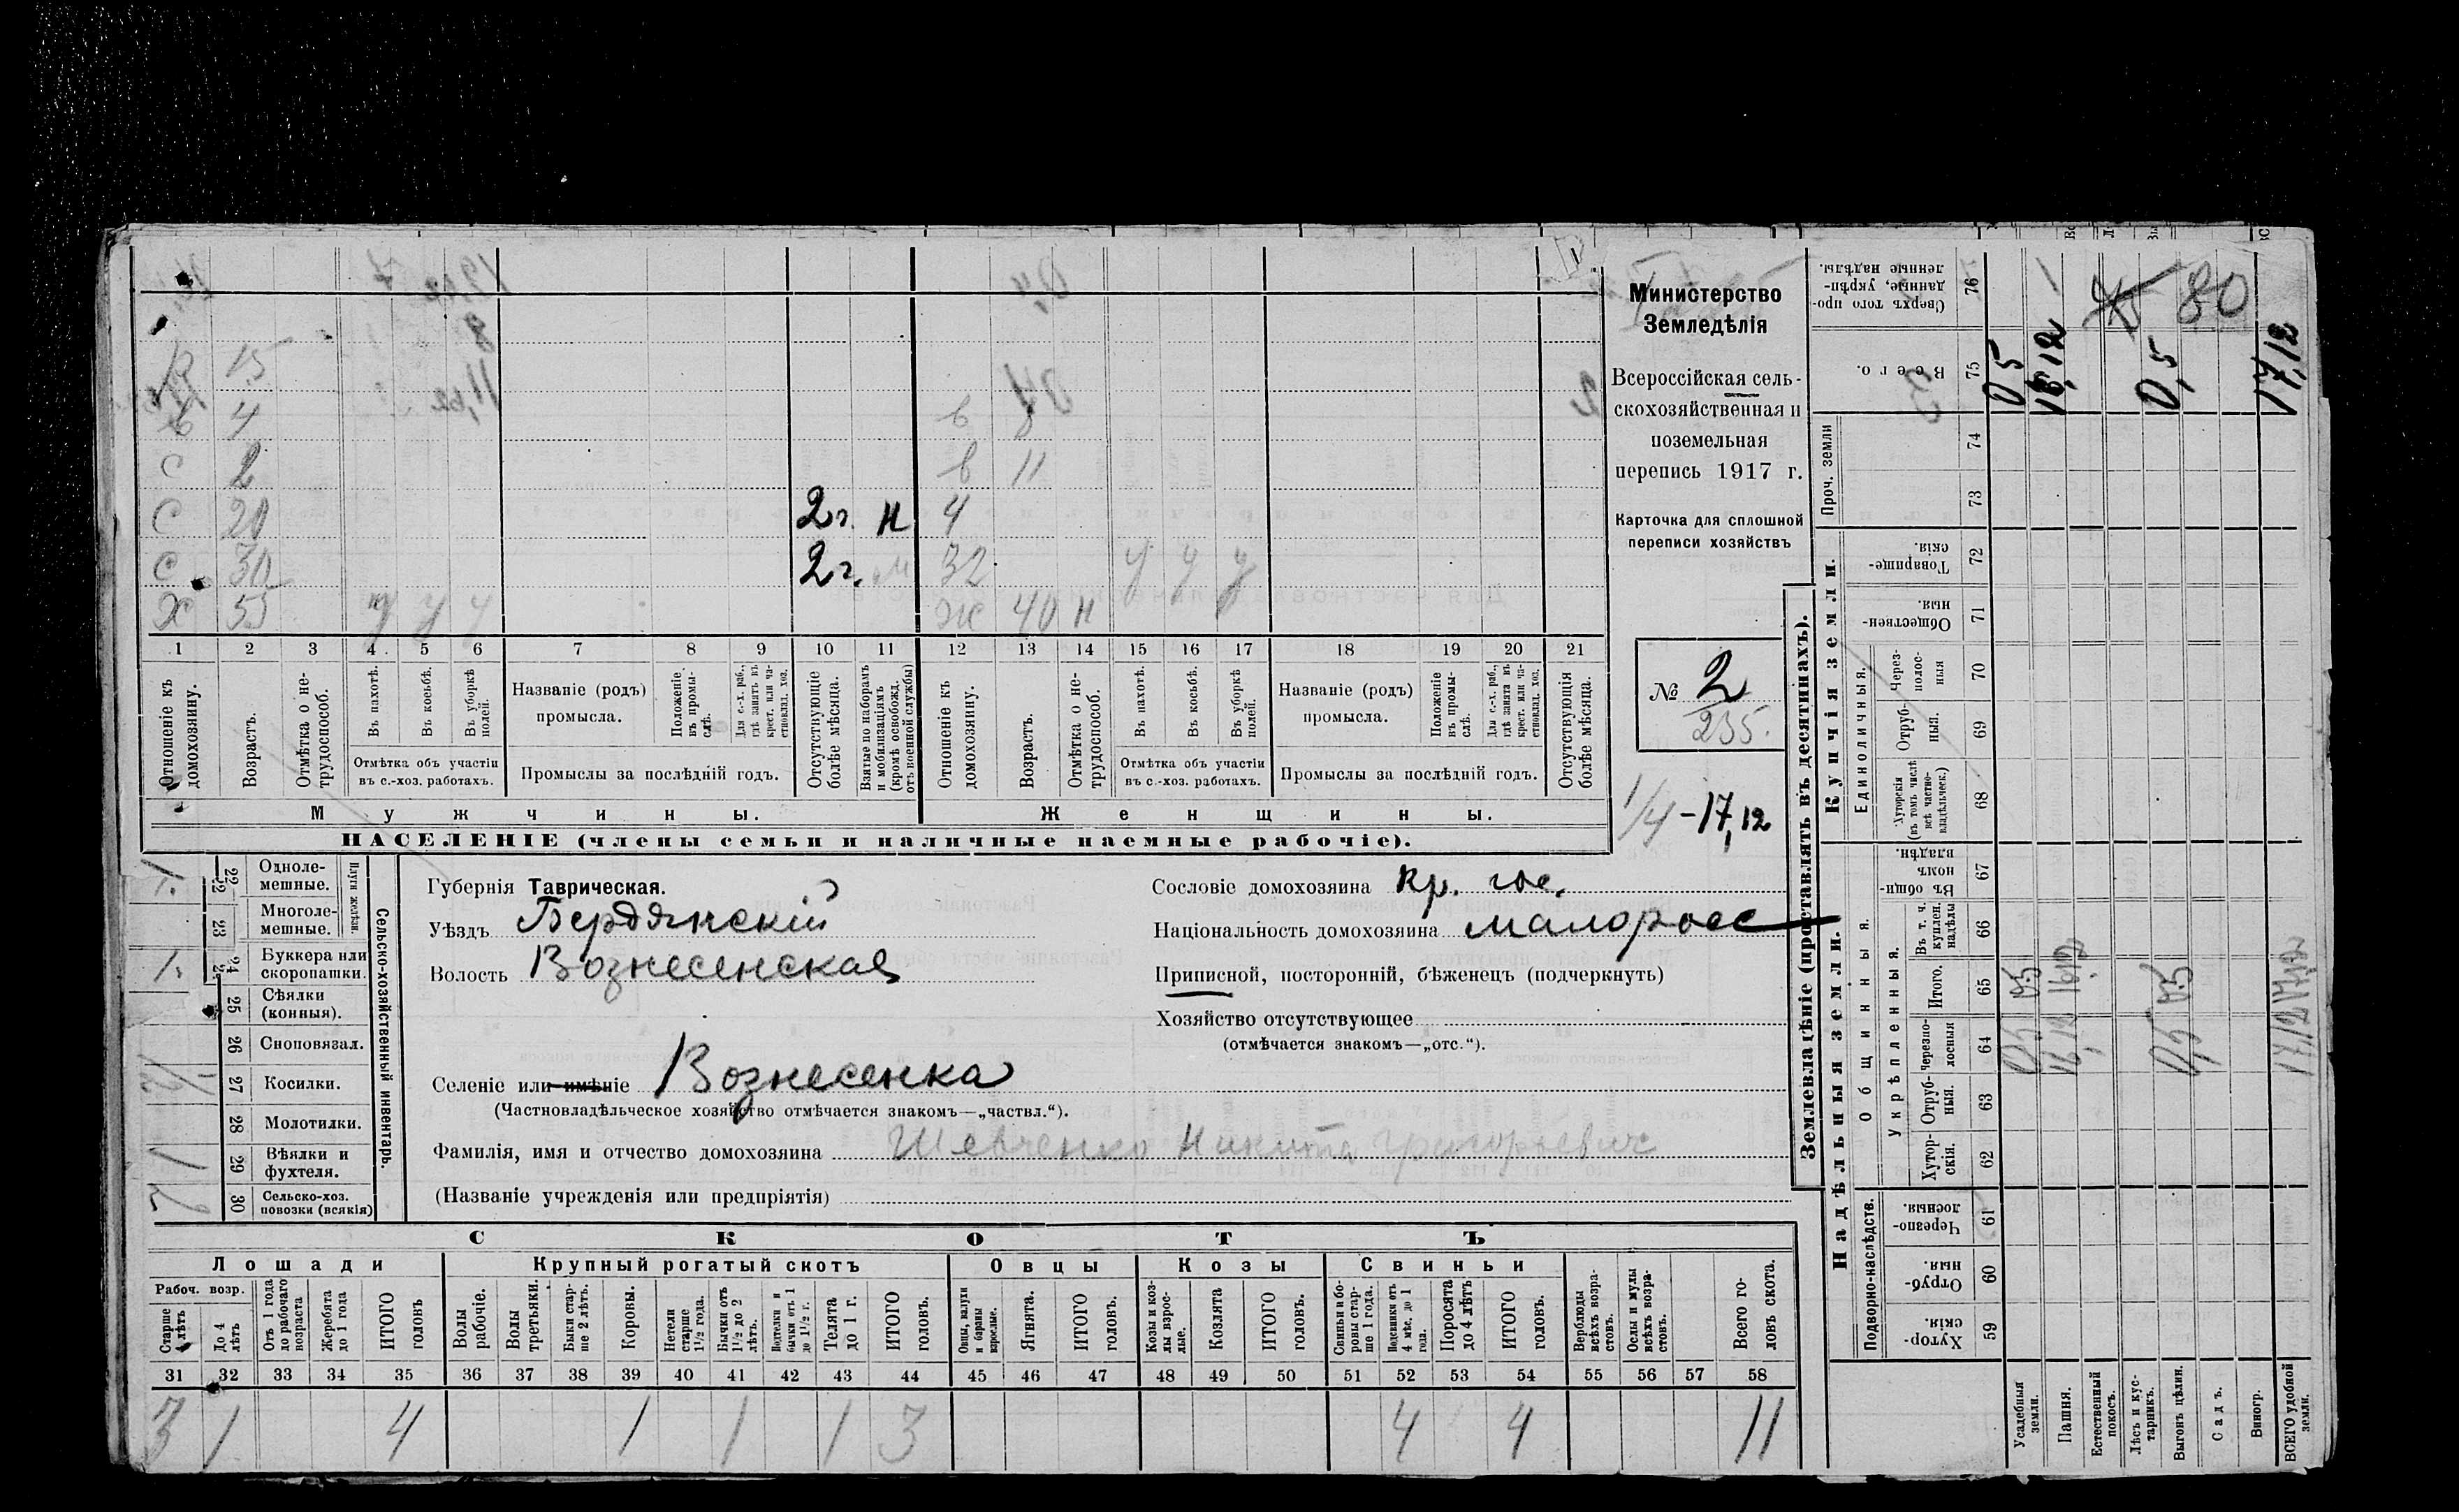 Министерство
Земледѣлія
Всероссійская сель-
скохозяйственная и
поземельная
перепись 1917 г.
Карточка для сплошной
переписи хозяйствъ
№ 2
235.
1/4 - 17,12
15
4 в 8
с 2 в 11
с 20 2 г. н 4
с 30 2 г. м 32 у у у
х 55 у у у ж 40 н
1 2 3 4 5 6 7 8 9 10 11 12 13 14 15 16 17 18 19 20 21
Отношеніе къ домохозяину.
Возрастъ.
Отмѣтка о не-трудоспособ.
Въ пахотѣ.
Въ косьбѣ.
Въ уборкѣ полей.
Отмѣтка объ участіи
въ с.-хоз. работахъ.
Названіе (родъ)
промысла.
Положеніе въ промы-слѣ.
Для с.-х. раб., гдѣ занятъ въ крест. или ча-стновлад. хоз.
Промыслы за послѣдній годъ.
Отсутствующіе болѣе мѣсяца.
Взятые по наборамъ и мобилизаціямъ (кромѣ освобожд. отъ военной службы)
Отношеніе къ домохозяину.
Возрастъ.
Отмѣтка о не-трудоспособ.
Въ пахотѣ.
Въ косьбѣ.
Въ уборкѣ полей.
Отмѣтка объ участіи
въ с.-хоз. работахъ.
Названіе (родъ)
промысла.
Положеніе въ промы-слѣ.
Для с.-х. раб., гдѣ занята въ крест. или ча-стновлад. хоз.
Промыслы за послѣдній годъ.
Отсутствующія болѣе мѣсяца.
Мужчины. Женщины.
НАСЕЛЕНІЕ (члены семьи и наличные наемные рабочіе).
Губернія Таврическая.
Уѣздъ Бердянскій
Волость Вознесенская
Селеніе или имѣніе Вознесенка
(Частновладѣльческое хозяйство отмѣчается знакомъ—„частвл.“).
Фамилія, имя и отчество домохозяина Шевченко Никита Григорьевич
(Названіе учрежденія или предпріятія)
Сословіе домохозяина кр. гос.
Національность домохозяина малоросс
Приписной, посторонній, бѣженецъ (подчеркнуть)
Хозяйство отсутствующее
(отмѣчается знакомъ—„отс.“).
Сельско-хозяйственный инвентарь.
Плуги желѣзн.
22 Одноле-мешные. 1
23 Многоле-мешные.
24 Буккера или скоропашки. 1
25 Сѣялки (конныя).
26 Сноповязал.
27 Косилки.
28 Молотилки.
29 Вѣялки и фухтеля. 1
30 Сельско-хоз. повозки (всякія)
СКОТЪ
Лошади Крупный рогатый скотъ Овцы Козы Свиньи
Рабоч. возр.
Старше 4 лѣтъ
До 4 лѣтъ
Отъ 1 года до рабочаго возраста
Жеребята до 1 года
ИТОГО головъ
Волы рабочіе.
Волы третьяки.
Быки стар-ше 2 лѣтъ.
Коровы.
Нетели старше 1½ года.
Бычки отъ 1½ до 2 лѣтъ.
Подтелки и бычки отъ 1 до 1½ г.
Телята до 1 г.
ИТОГО головъ.
Овцы, валухи и бараны взрослые.
Ягнята.
ИТОГО головъ.
Козы и коз-лы взрос-лые.
Козлята
ИТОГО головъ.
Свиньи и бо-ровы стар-ше 1 года.
Подсвинки отъ 4 мѣс. до 1 года.
Поросята до 4 лѣтъ
ИТОГО головъ.
Верблюды всѣхъ возра-стовъ.
Ослы и мулы всѣхъ возра-стовъ.
Всего го-ловъ скота.
31 32 33 34 35 36 37 38 39 40 41 42 43 44 45 46 47 48 49 50 51 52 53 54 55 56 57 58
3 1 4 1 1 1 3 4 4 11
Землевладѣніе (проставлять въ десятинахъ).
Надѣльныя земли. Купчія земли. Проч. земли
Подворно-наслѣдств.
Общинныя.
Укрѣпленныя.
Единоличныя.
59 Хутор-скія.
60 Отруб-ныя.
61 Черезпо-лосныя.
62 Хутор-скія.
63 Отруб-ныя.
64 Черезпо-лосныя
65 Итого.
66 Въ т. ч. куплен. надѣлы
67 Въ общи-номъ владѣн.
68 Хуторскія (въ томъ числѣ всѣ частно-владѣльческ.)
69 Отруб-ныя.
70 Через-полос-ныя
71 Обществен-ныя.
72 Товарище-скія.
73
74
75 Всего.
76 Сверхъ того про-данные, укрѣп-ленные надѣлы.
Усадебныя земли. 0,5 0,5 0,5
Пашня. 16,12 16,12 16,12
Естественный покосъ.
Лѣсъ и кус-тарникъ.
Выгонъ цѣлин. 0,5 0,5 0,5
Садъ.
Виногр.
ВСЕГО удобной земли. 17,12 17,12 17,12
80